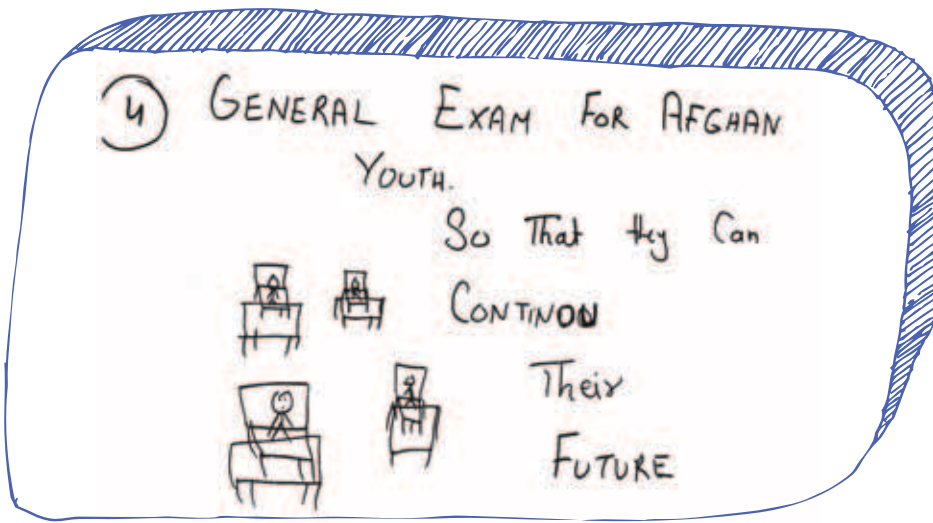 4 GENERAL EXAM FOR AFGHAN
YOUTH.
So That they Can
CONTINOU
Their
FUTURE